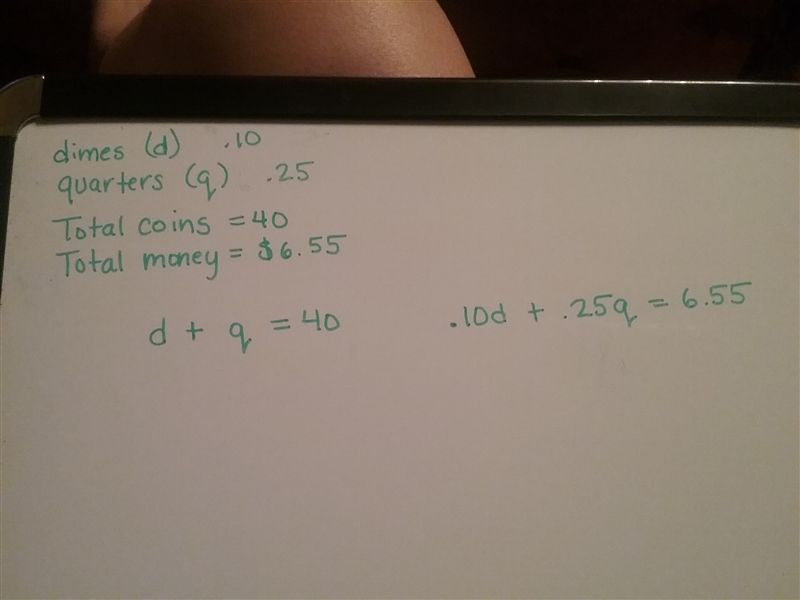 dimes (d) .10
quarters (q) .25
Total coins = 40
Total money = $6.55
d + q = 40 .10d + .25q = 6.55